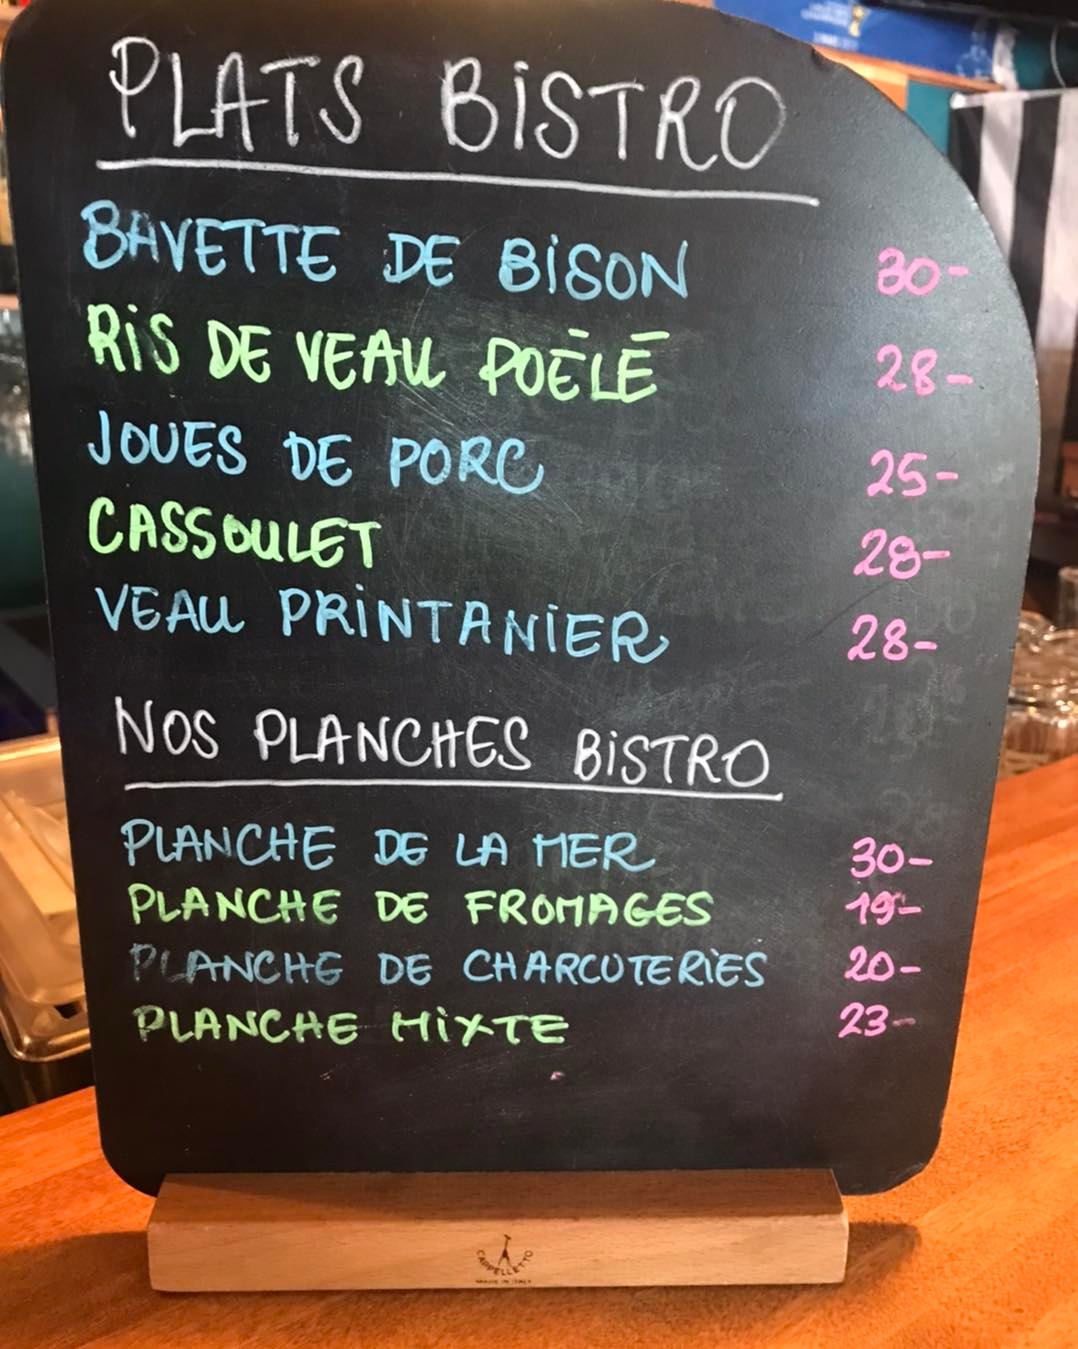 PLATS BISTRO
BAVETTE DE BISON 30-
RIS DE VEAU POÊLÉ 28-
JOUES DE PORC 25-
CASSOULET 28-
VEAU PRINTANIER 28-
NOS PLANCHES BISTRO
PLANCHE DE LA MER 30-
PLANCHE DE FROMAGES 19-
PLANCHE DE CHARCUTERIES 20-
PLANCHE MIXTE 23-
CAPPELLETTO
MADE IN ITALY